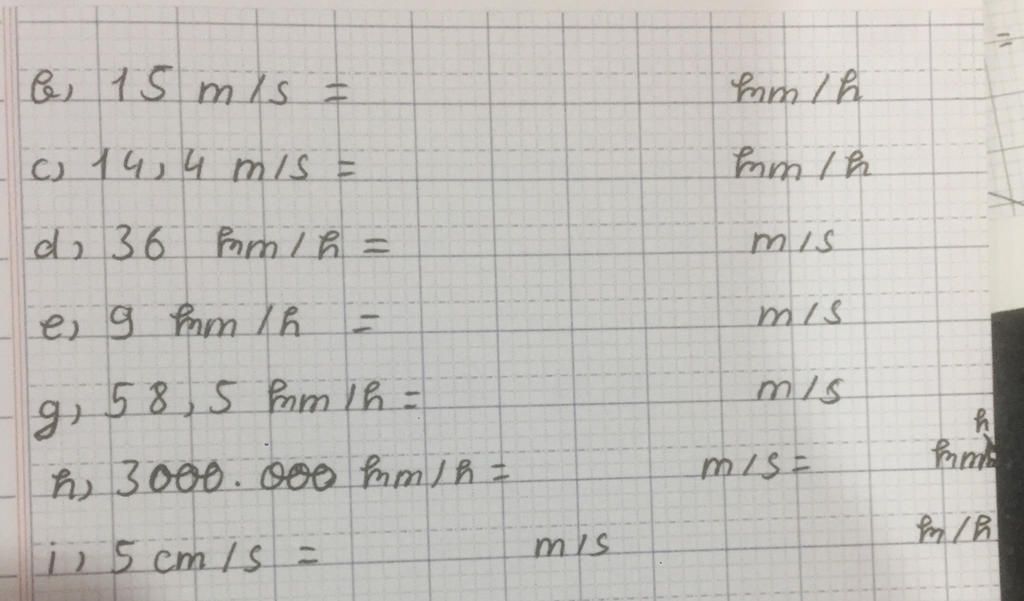 b, 15 m/s = km/h
c, 14,4 m/s = km/h
d, 36 km/h = m/s
e, 9 km/h = m/s
g, 58,5 km/h = m/s
h, 3000.000 km/h = m/s = km/h
i, 5 cm/s = m/s k/h